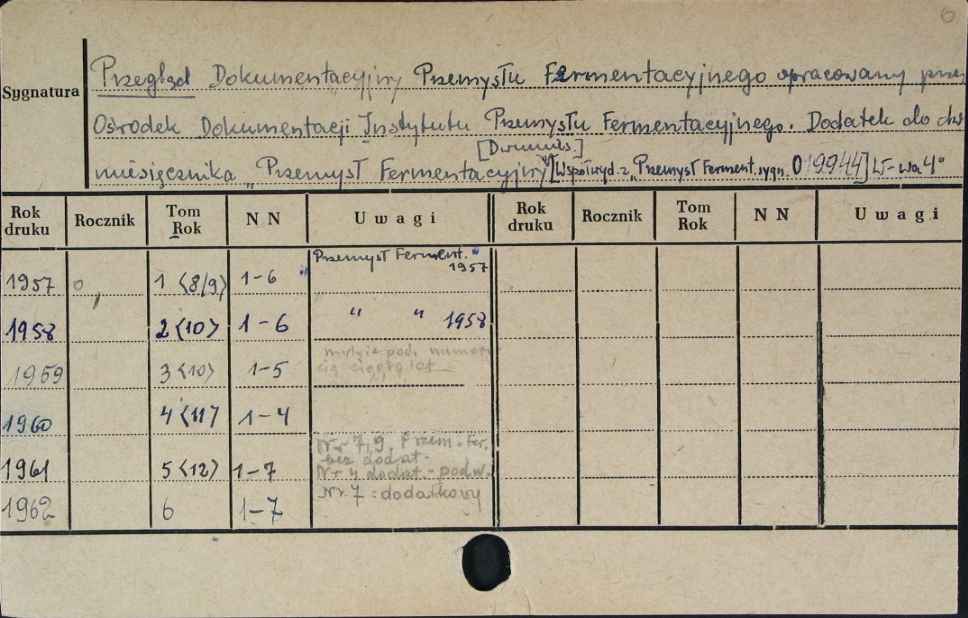 6
Sygnatura
Przegląd Dokumentacyjny Przemysłu Fermentacyjnego opracowany przez
Ośrodek Dokumentacji Instytutu Przemysłu Fermentacyjnego. Dodatek do dwu
[Dwumies.]
miesięcznika „Przemysł Fermentacyjny" [Współwyd. z „Przemysł Ferment. sygn. 019944] W-wa 4°
Rok druku Rocznik Tom Rok N N Uwagi Rok druku Rocznik Tom Rok N N Uwagi
1957 1 <8/9> 1-6 „Przemysł Ferment." 1957
1958 2 <10> 1-6 " " 1958
1959 3 <10> 1-5 mylnie pod. numer
1960 4 <11> 1-4
1961 5 <12> 1-7 Nr 7, 9. Przem. Fer. bez dodat. Nr 4 dodat. - podw.
1962 6 1-7 Nr. 7 : dodatkowy